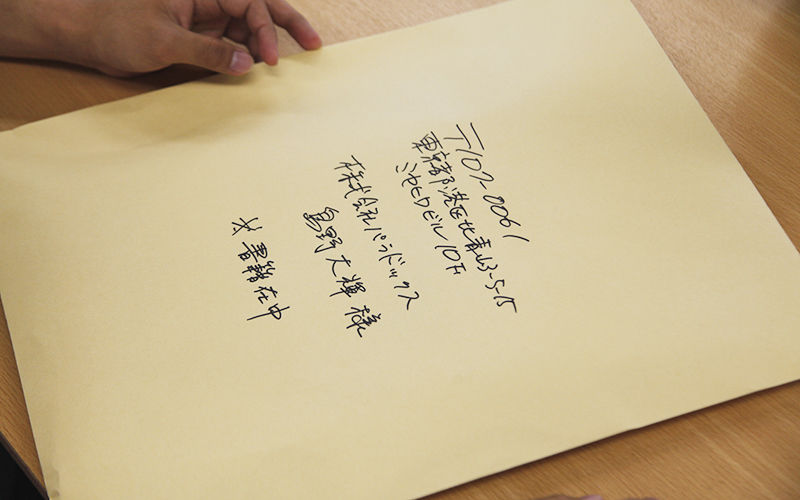 〒107-0061
東京都港区北青山3-5-15
ミヤヒロビル10F
株式会社パラドックス
島野大輝様
※書籍在中